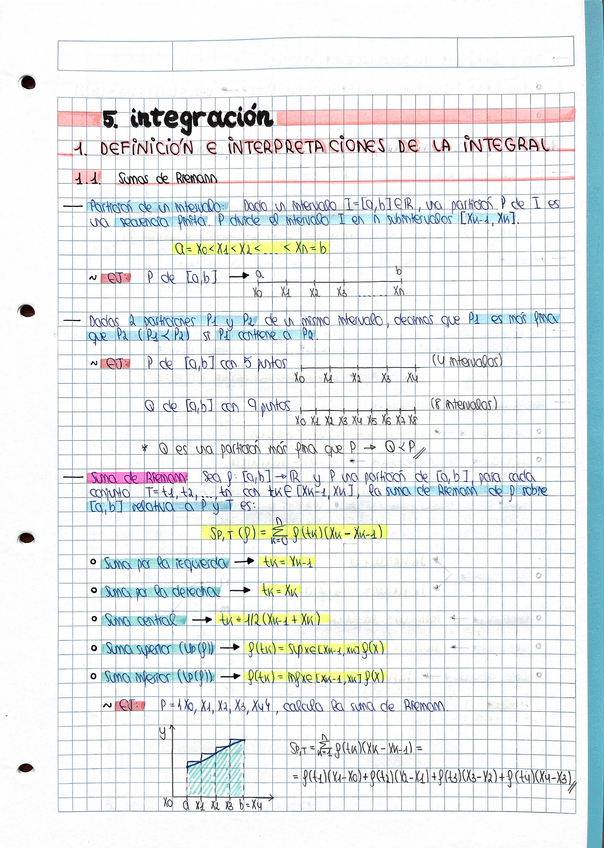 5. integración
1. DEFINICIÓN E INTERPRETACIONES DE LA INTEGRAL
1.1. Sumas de Riemann
— Partición de un intervalo: Dado un intervalo I=[a,b]∈ℝ, una partición P de I es
una secuencia finita. P divide el intervalo I en n subintervalos [Xk-1, Xk].
a = X0 < X1 < X2 < .... < Xn = b
~ EJ: P de [a,b] → a b
X0 X1 X2 X3 ....... Xn
— Dadas 2 particiones P1 y P2 de un mismo intervalo, decimos que P1 es más fina
que P2 (P1 < P2) si P1 contiene a P2.
~ EJ: P de [a,b] con 5 puntos (4 intervalos)
X0 X1 X2 X3 X4
Q de [a,b] con 9 puntos (8 intervalos)
X0 X1 X2 X3 X4 X5 X6 X7 X8
* Q es una partición más fina que P → Q < P //
— Suma de Riemann: Sea f: [a,b] → ℝ y P una partición de [a,b], para cada
conjunto T = t1, t2, ..., tn con tk ∈ [Xk-1, Xk], la suma de Riemann de f sobre
[a,b] relativa a P y T es:
SP,T (f) = n∑k=0 f(tk)(Xk - Xk-1)
o Suma por la izquierda → tk = Xk-1
o Suma por la derecha → tk = Xk
o Suma central → tk = 1/2 (Xk-1 + Xk)
o Suma superior (Up(f)) → f(tk) = sup x∈[Xk-1, Xk] f(x)
o Suma inferior (Lp(f)) → f(tk) = inf x∈[Xk-1, Xk] f(x)
~ EJ: P = {X0, X1, X2, X3, X4}, calcula la suma de Riemann
y
SP,T = n∑k=1 f(tk)(Xk - Xk-1) =
= f(t1)(X1-X0) + f(t2)(X2-X1) + f(t3)(X3-X2) + f(t4)(X4-X3) //
X0 a X1 X2 X3 b=X4